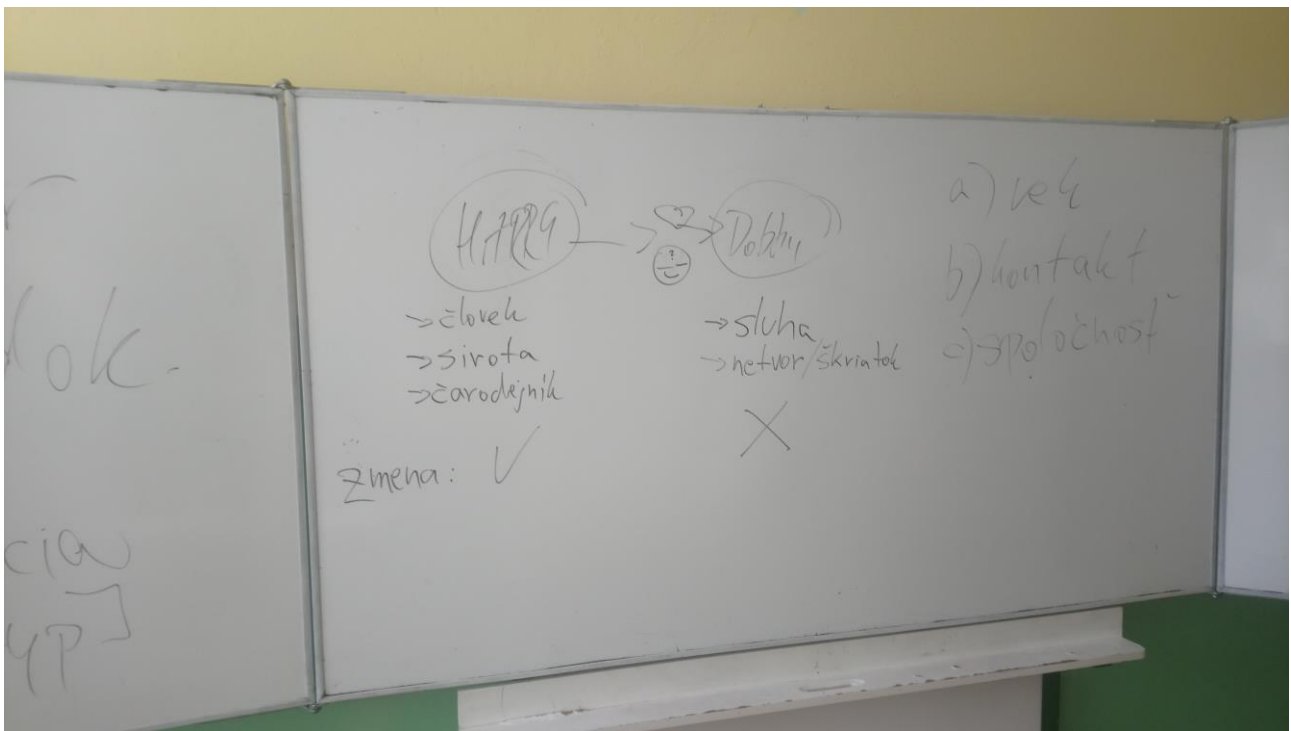 ok.
cia
yp]
HARRY → Dobby
→ človek
→ sirota
→ čarodejník
→ sluha
→ netvor/škriatok
zmena: ✓ X
a) vek
b) kontakt
c) spoločnosť